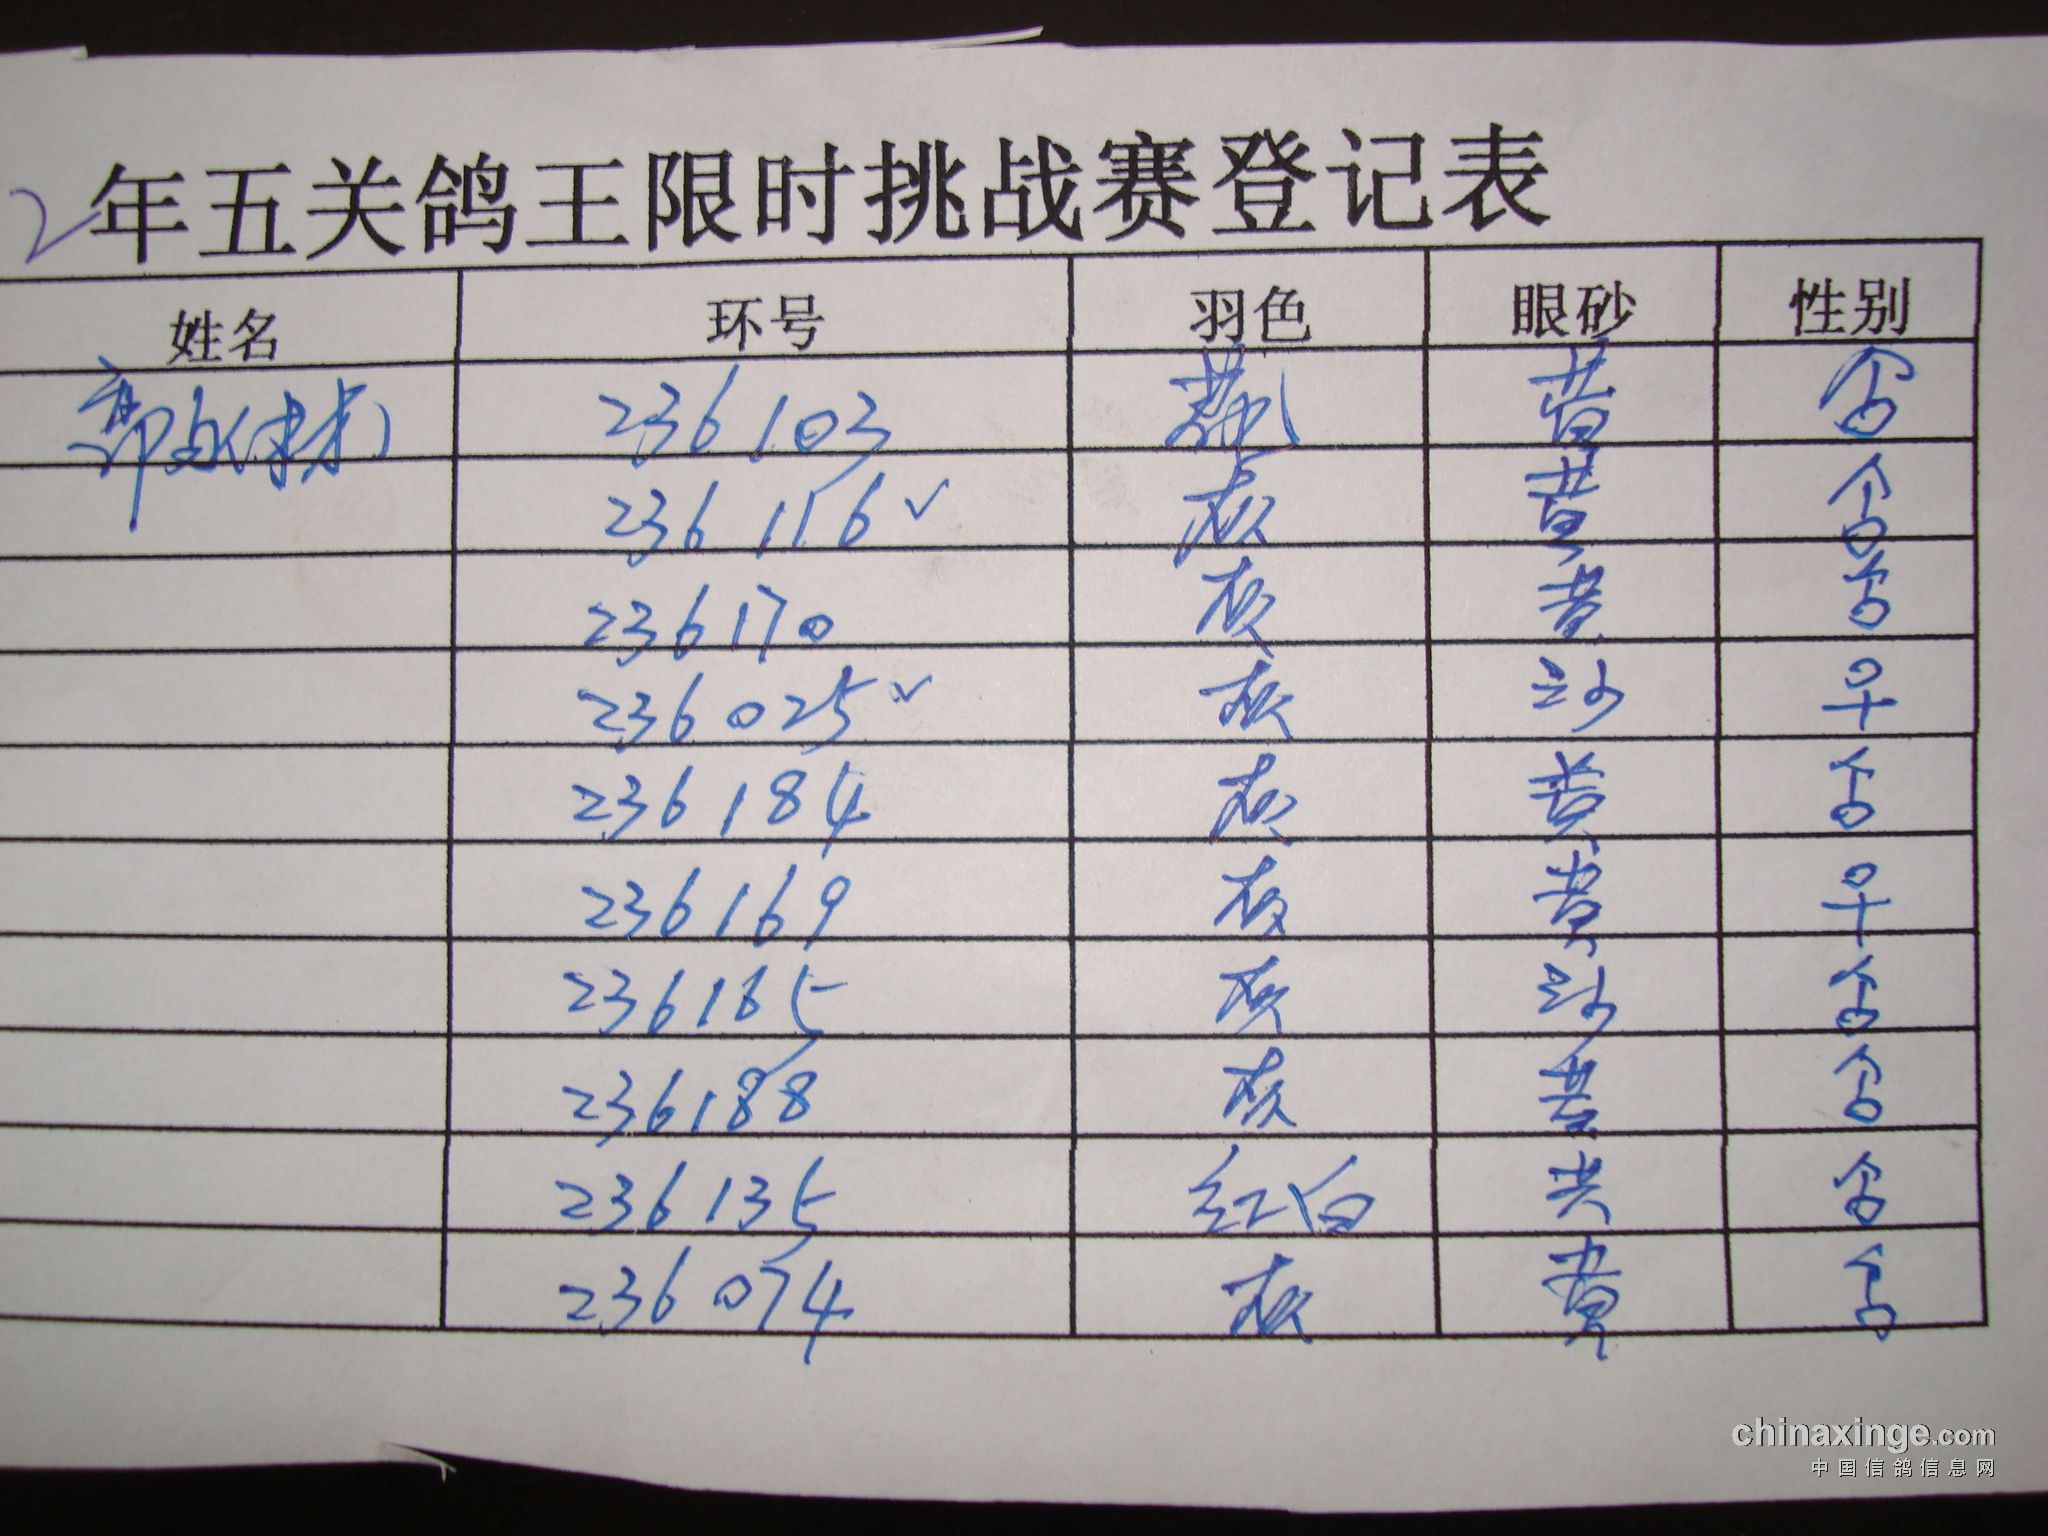 2年五关鸽王限时挑战赛登记表
姓名 环号 羽色 眼砂 性别
236103 黄 合
236116 ✓ 灰 黄 合
236170 灰 黄 合
236025 ✓ 灰 沙 早
236184 灰 黄 合
236169 灰 黄 早
236165 灰 沙 合
236188 灰 黄 合
236135 红白 黄 合
236074 灰 黄 合
chinaxinge.com
中国信鸽信息网